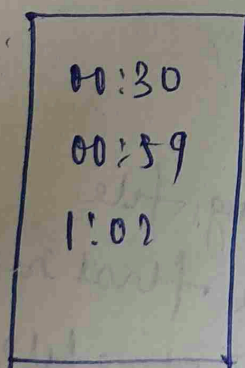 00:30
00:59
1:02